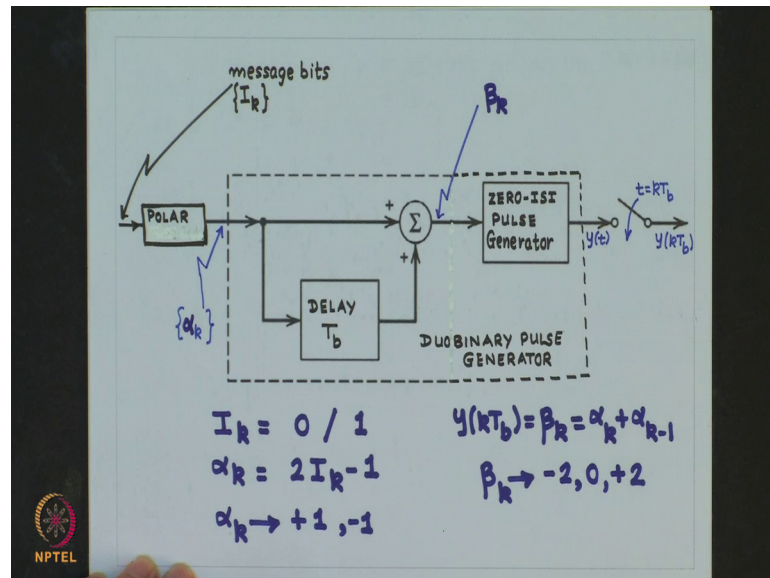 message bits
{I_k}
β_k
POLAR
+
Σ
+
ZERO-ISI
PULSE
Generator
t=kT_b
y(t)
y(kT_b)
{α_k}
DELAY
T_b
DUOBINARY PULSE
GENERATOR
I_k = 0 / 1
y(kT_b) = β_k = α_k + α_{k-1}
α_k = 2I_k - 1
β_k → -2, 0, +2
α_k → +1, -1
NPTEL